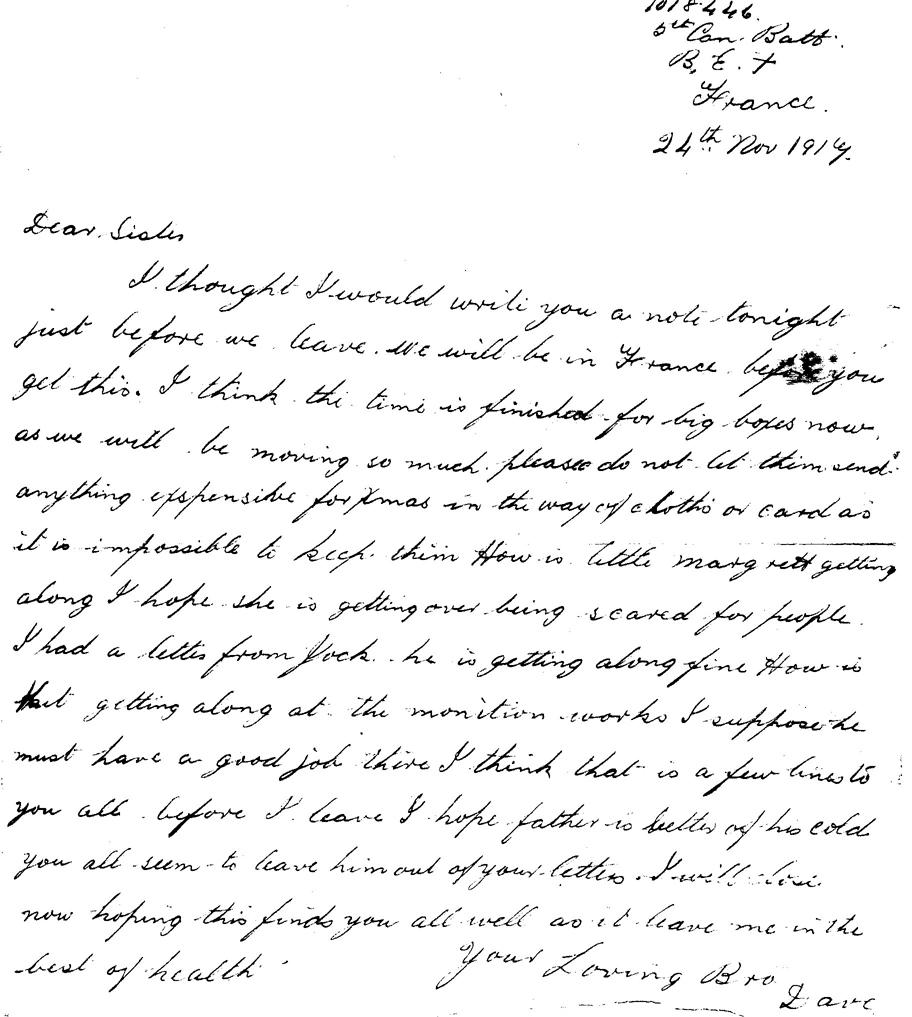 1018446.
5th Can. Batt.
B. E. F
France.
24th Nov 1916.
Dear. Sister
I thought I would write you a note tonight
just before we leave. We will be in France before you
get this. I think the time is finished for big boxes now,
as we will be moving so much please do not let them send
anything expensive for Xmas in the way of cloths or card as
it is impossible to keep them How is little margrett getting
along I hope she is getting over being scared for people.
I had a letter from Jock he is getting along fine How is
getting along at the monition works I suppose he
must have a good job there I think that is a few lines to
you all before I leave I hope father is better of his cold
you all seem to leave him out of your letters. I will close
now hoping this finds you all well as it leave me in the
best of health
Your Loving Bro
Dave